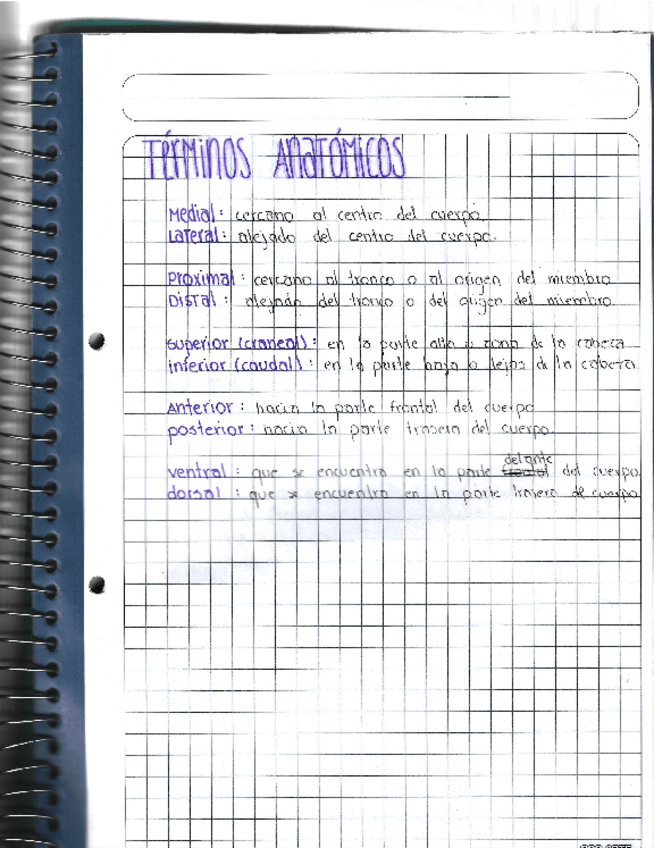 TÉRMINOS ANATÓMICOS
Medial: cercano al centro del cuerpo.
Lateral: alejado del centro del cuerpo.
Proximal: cercano al tronco o al origen del miembro
Distal: alejado del tronco o del origen del miembro.
superior (craneal): en la parte alta o zona de la cabeza
inferior (caudal): en la parte baja o lejos de la cabeza
Anterior: hacia la parte frontal del cuerpo
posterior: hacia la parte trasera del cuerpo
delante
ventral: que se encuentra en la parte frontal del cuerpo
dorsal: que se encuentra en la parte trasera de cuerpo